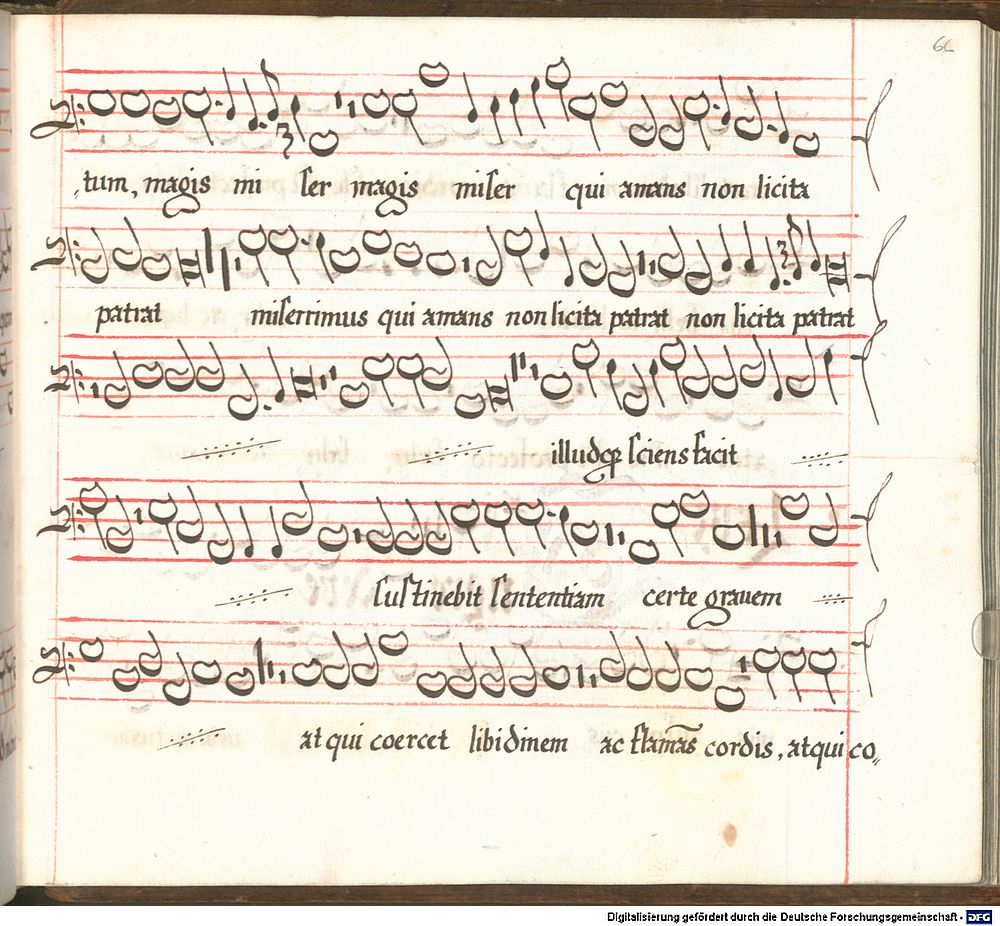 66
,tum, magis mi ſer magis miſer qui amans non licita
patrat miſerrimus qui amans non licita patrat non licita patrat
illudqꝫ ſciens facit
ſuſtinebit ſententiam certe grauem
at qui coercet libidinem ac flam̄as cordis, atqui co„
Digitalisierung gefördert durch die Deutsche Forschungsgemeinschaft - DFG